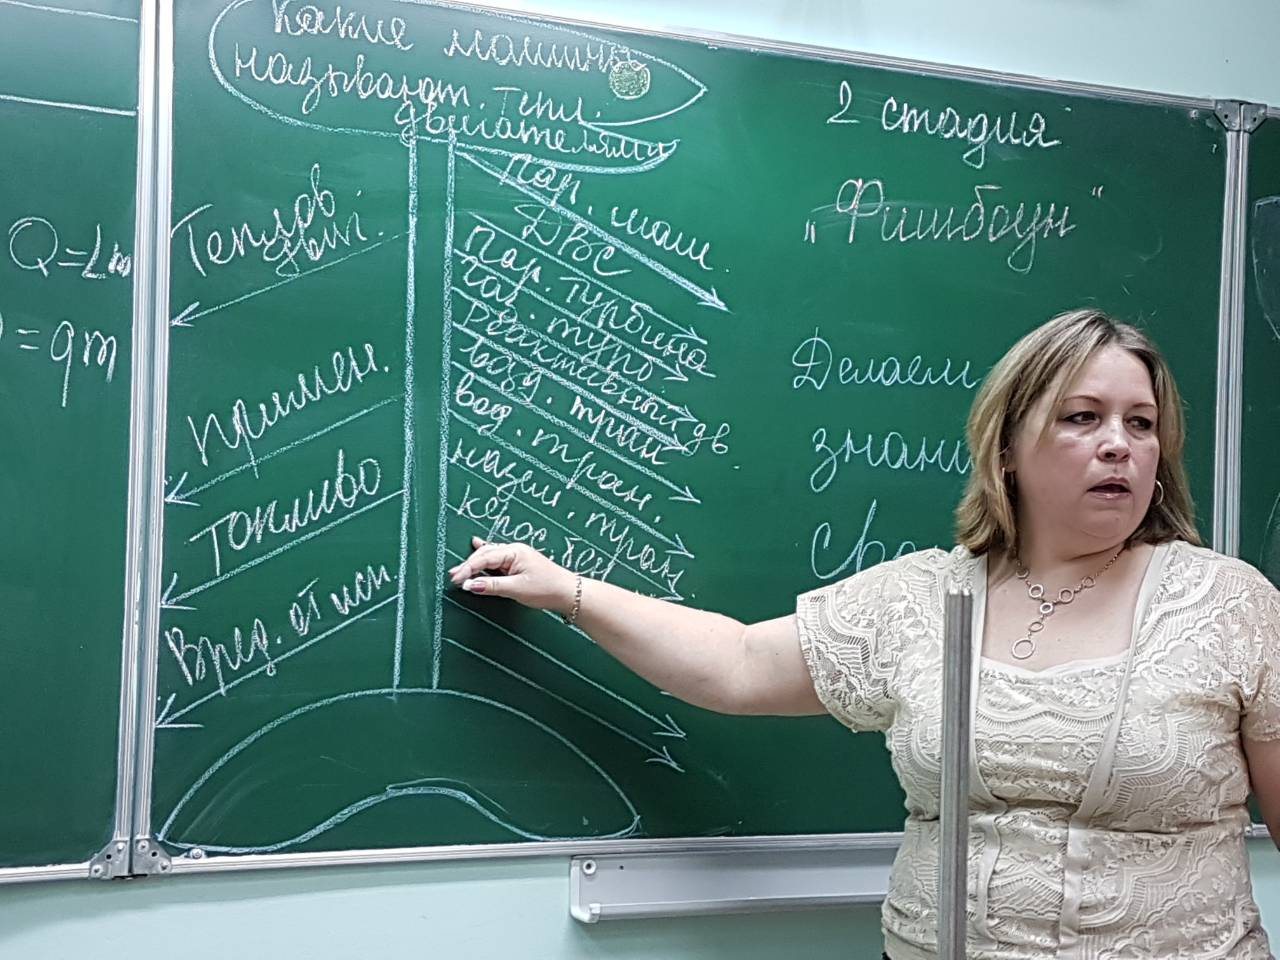 Какие машины
называют. тепл.
двигателями
Теплов
двиг.
Примен.
Топливо
Вред. от исп.
Пар. маш.
ДВС
Пар. турбина
Газ. турб.
Реактивный дв
возд. тран
вод. тран.
назем. тран
керос. бен
2 стадия
„Фишбоун“
Делаем
знани
Сво
Q=Lm
=qm